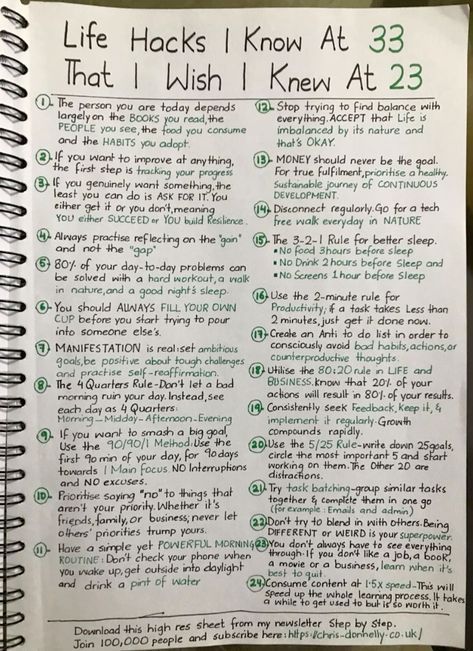 Life Hacks I Know At 33
That I Wish I Knew At 23
1- The person you are today depends
largely on the BOOKS you read, the
PEOPLE you see, the food you consume
and the HABITS you adopt.
2- If you want to improve at anything,
the first step is tracking your progress
3- If you genuinely want something, the
least you can do is ASK FOR IT. You
either get it or you don't, meaning
YOU either SUCCEED or YOU build Resilience.
4- Always practise reflecting on the "gain"
and not the "gap"
5- 80% of your day-to-day problems can
be solved with a hard workout, a walk
in nature, and a good night's sleep.
6- You should ALWAYS FILL YOUR OWN
CUP before you start trying to pour
into someone else's.
7- MANIFESTATION is real: set ambitious
goals, be positive about tough challenges
and practise self-reaffirmation.
8- The 4 Quarters Rule-Don't let a bad
morning ruin your day. Instead, see
each day as 4 Quarters:
Morning - Midday - Afternoon - Evening
9- If you want to smash a big goal,
Use the 90/90/1 Method: Use the
first 90 min of your day, for 90 days
towards 1 Main focus. NO Interruptions
and NO excuses.
10- Prioritise saying "no" to things that
aren't your priority. Whether it's
friends, family, or business; never let
others' priorities trump yours.
11- Have a simple yet POWERFUL MORNING
ROUTINE: Don't check your phone when
you wake up, get outside into daylight
and drink a pint of water
12- Stop trying to find balance with
everything. ACCEPT that Life is
imbalanced by its nature and
that's OKAY.
13- MONEY should never be the goal.
For true fulfilment, prioritise a healthy,
Sustainable journey of CONTINUOUS
DEVELOPMENT.
14- Disconnect regularly. Go for a tech
free walk everyday in NATURE
15- The 3-2-1 Rule for better sleep.
• No food 3 hours before sleep
• NO Drink 2 hours before Sleep and
• No Screens 1 hour before Sleep
16- Use the 2-minute rule for
Productivity; if a task takes Less than
2 minutes, just get it done now.
17- Create an Anti to do list in order to
consciously avoid bad habits, actions, or
counterproductive thoughts.
18- Utilise the 80:20 rule in LIFE and
BUSINESS. Know that 20% of your
actions will result in 80% of your results.
19- Consistently seek Feedback, Keep it, &
implement it regularly. Growth
compounds rapidly.
20- Use the 5/25 Rule- write down 25 goals,
circle the most important 5 and start
working on them. The Other 20 are
distractions.
21- Try task batching-group similar tasks
together & complete them in one go
(for example: Emails and admin)
22- Don't try to blend in with others. Being
DIFFERENT or WEIRD is your superpower.
23- You don't always have to see everything
through. If you don't like a job, a book,
a movie or a business, learn when it's
best to quit.
24- Consume content at 1.5X speed - This will
Speed up the whole learning process. It takes
a while to get used to but is so worth it.
Download this high res sheet from my newsletter Step by Step.
Join 100,000 people and subscribe here: https://chris-donnelly.co.uk/